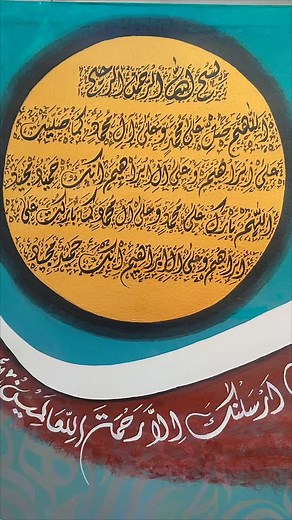 بسم الله الرحمن الرحيم
اللهم صل على محمد وعلى ال محمد كما صليت
على ابراهيم وعلى ال ابراهيم انك حميد مجيد
اللهم بارك على محمد وعلى ال محمد كما باركت على
ابراهيم وعلى ال ابراهيم انك حميد مجيد
ارسلنك الا رحمة للعالمين